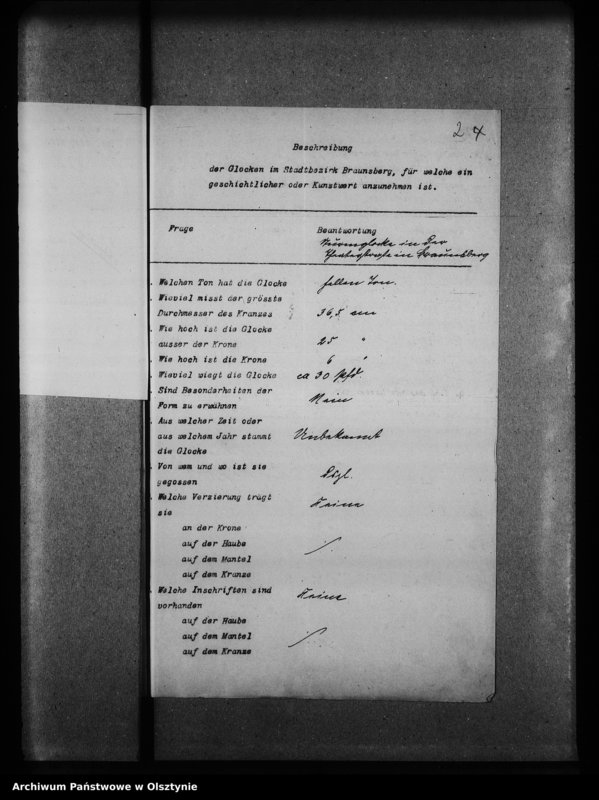 2 4
Beschreibung
der Glocken im Stadtbezirk Braunsberg, für welche ein
geschichtlicher oder Kunstwert anzunehmen ist.
Frage Beantwortung
Turmglocke in der
in Braunsberg
. Welchen Ton hat die Glocke hellen Ton.
. Wieviel misst der grösste
Durchmesser des Kranzes 36,5 cm
. Wie hoch ist die Glocke
ausser der Krone 25 "
. Wie hoch ist die Krone 6 "
. Wieviel wiegt die Glocke ca 30 Pfd.
. Sind Besonderheiten der
Form zu erwähnen Nein
. Aus welcher Zeit oder
aus welchem Jahr stammt Unbekannt
die Glocke
. Von wem und wo ist sie
gegossen Dsgl.
. Welche Verzierung trägt Keine
sie
an der Krone
auf der Haube
auf dem Mantel
auf dem Kranze
. Welche Inschriften sind Keine
vorhanden
auf der Haube
auf dem Mantel
auf dem Kranze
Archiwum Państwowe w Olsztynie